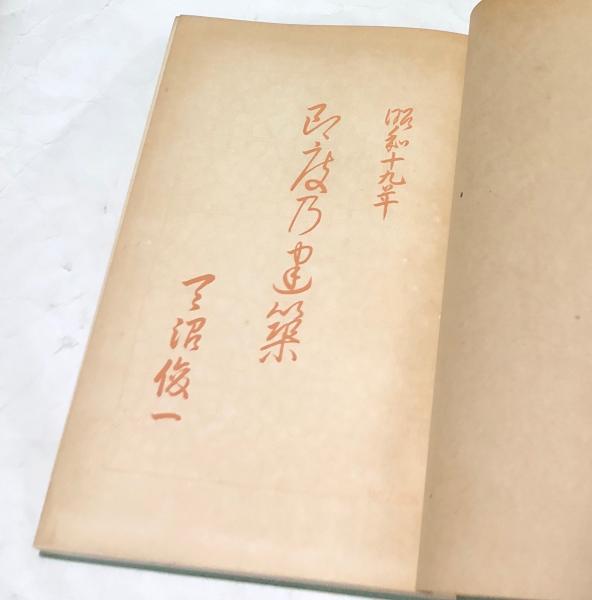 昭和十九年
印度乃建築
天沼俊一